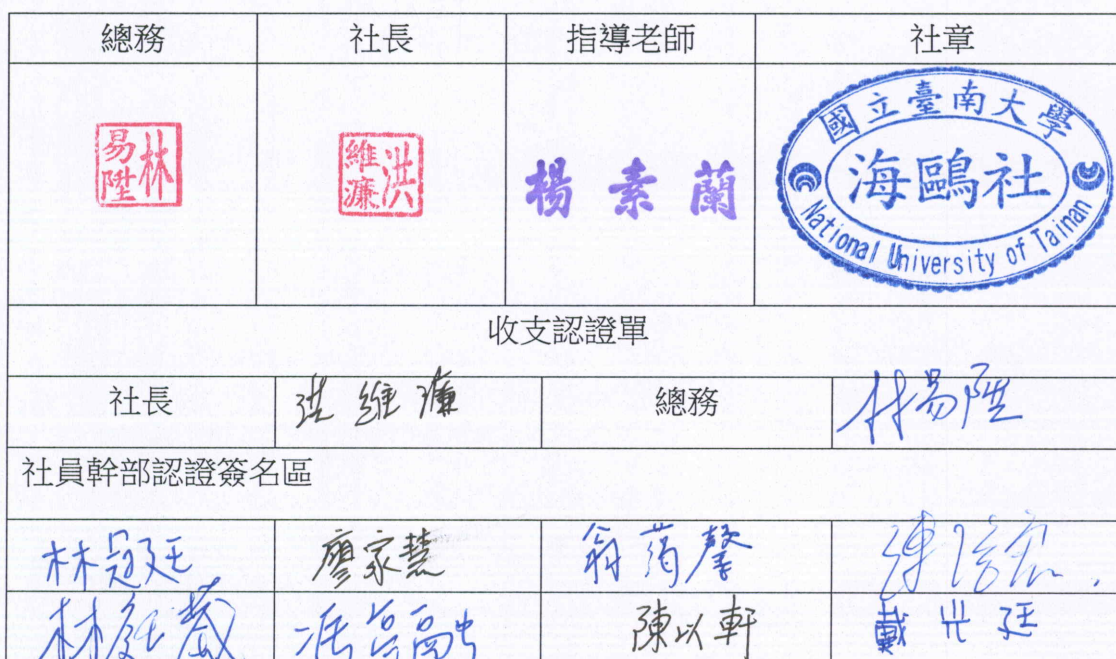 總務 社長 指導老師 社章
林易陞 洪維濂 楊素蘭 國立臺南大學
海鷗社
National University of Tainan
收支認證單
社長 洪維濂 總務 林易陞
社員幹部認證簽名區
廖家慧 翁菂馨
陳以軒 戴光廷